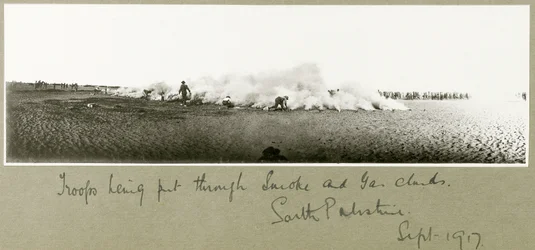 Troops being put through Smoke and Gas clouds.
South Palestine.
Sept. 1917